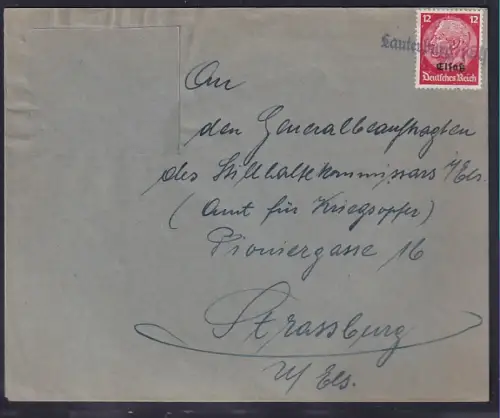 12 12
Elsaß
Deutsches Reich
An
den Generalbeauftragten
des Stillhaltekommissars i/Els.
(Amt für Kriegsopfer)
Pioniergasse 16
Strassburg
i/Els.